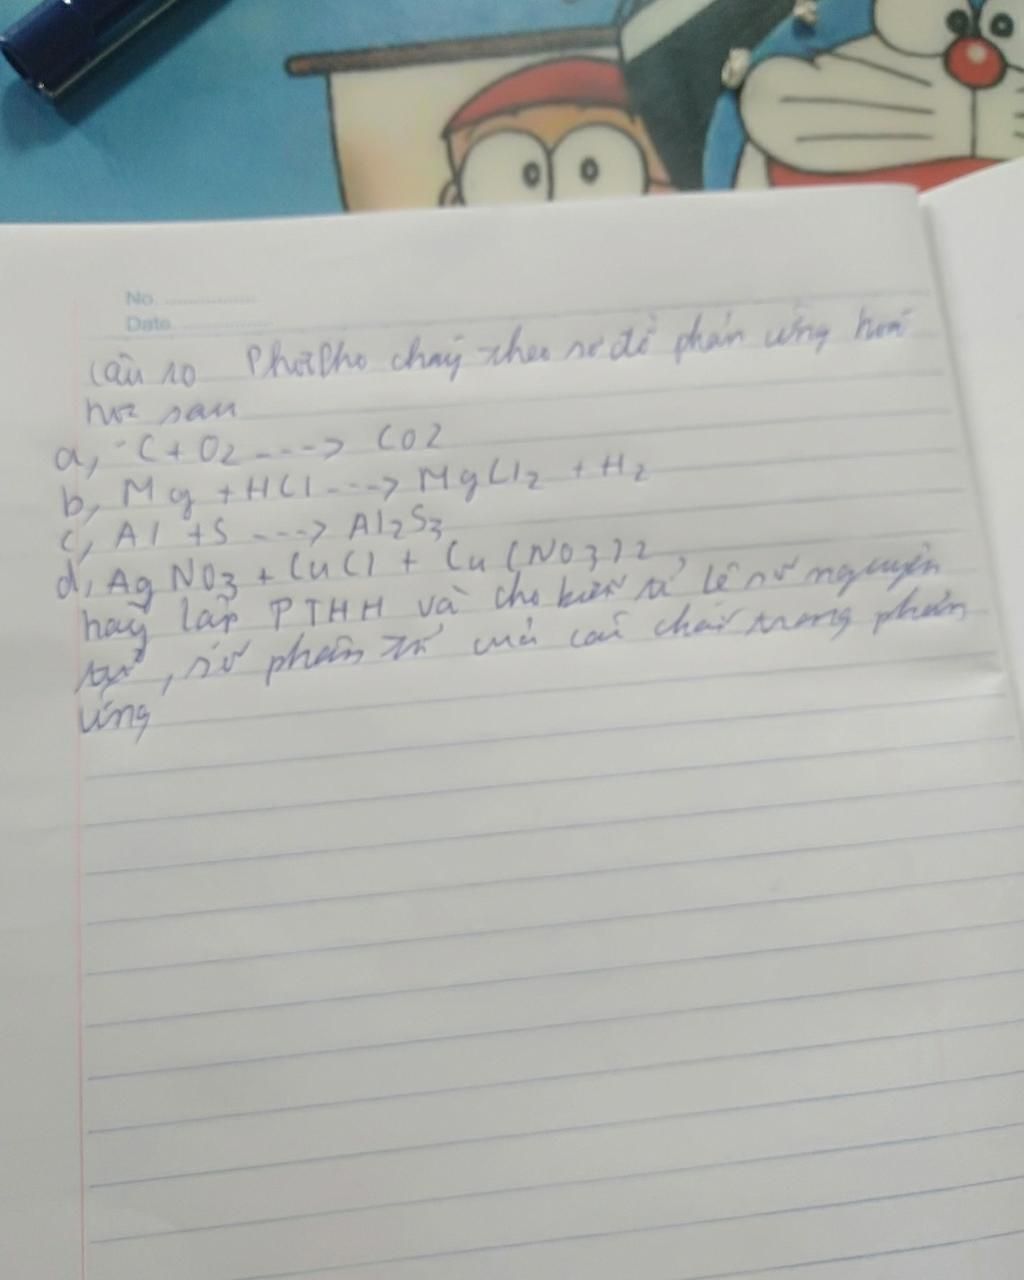 No.
Date
Câu 10 Phốtpho cháy theo sơ đồ phản ứng hoá
học sau
a, C + O2 ---> CO2
b, Mg + HCl ---> MgCl2 + H2
c, Al + S ---> Al2S3
d, AgNO3 + CuCl + Cu(NO3)2
hãy lập PTHH và cho biết tỉ lệ số nguyên
tử, số phân tử của các chất trong phản
ứng